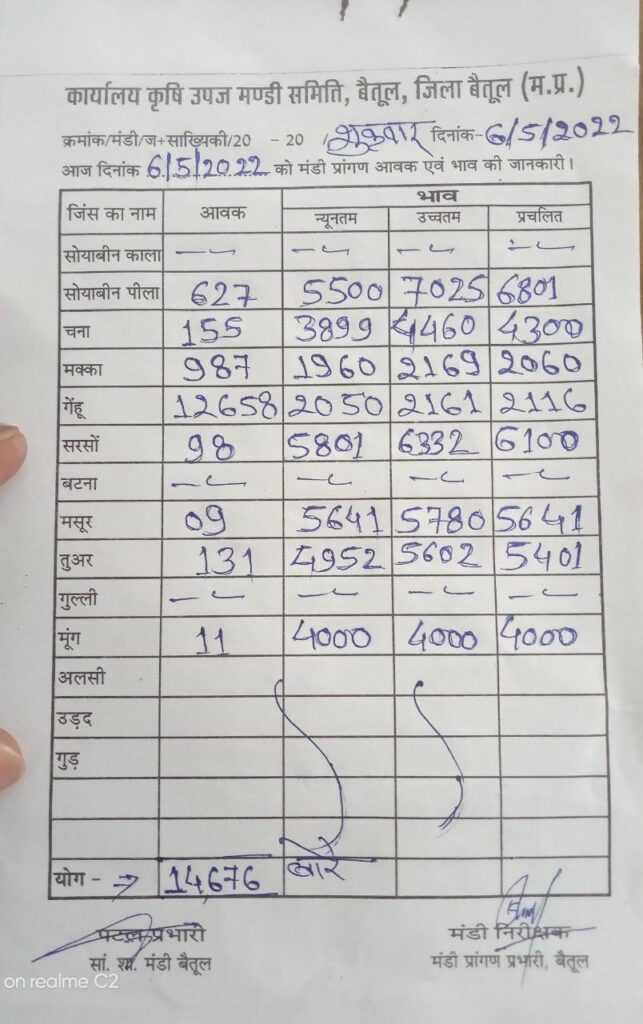 कार्यालय कृषि उपज मण्डी समिति, बैतूल, जिला बैतूल (म.प्र.)
क्रमांक/मंडी/ज+सांख्यिकी/20 - 20 /शुक्रवार दिनांक-6/5/2022
आज दिनांक 6/5/2022 को मंडी प्रांगण आवक एवं भाव की जानकारी।
जिंस का नाम आवक भाव
न्यूनतम उच्चतम प्रचलित
सोयाबीन काला -- -- -- --
सोयाबीन पीला 627 5500 7025 6801
चना 155 3899 4460 4300
मक्का 987 1960 2169 2060
गेंहू 12658 2050 2161 2116
सरसों 98 5801 6332 6100
बटना -- -- -- --
मसूर 09 5641 5780 5641
तुअर 131 4952 5602 5401
गुल्ली -- -- -- --
मूंग 11 4000 4000 4000
अलसी
उड़द
गुड़
योग - → 14,676 बोरे
प्रभारी मंडी निरीक्षक
सां. शा. मंडी बैतूल मंडी प्रांगण प्रभारी, बैतूल
on realme C2